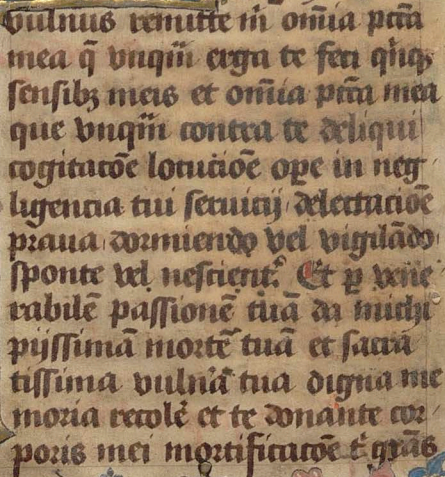 vulnus remitte m̄ om̄ia pctā
mea q̄ vnqm̄ erga te feci qnqȝ
sensibȝ meis et om̄ia pctā mea
que vnqm̄ contra te deliqui
cogitacōe locucōe ope in neg
ligencia tui seruicij delectacōe
praua dormiendo vel vigilādo
sponte vel nescient᷒ Et ꝑ vene
rabilē passionē tuā da michi
pijssimā mortē tuā et sacra
tissima vulnā tua digna me
moria recolē et te donante cor
poris mei mortificacōe grās